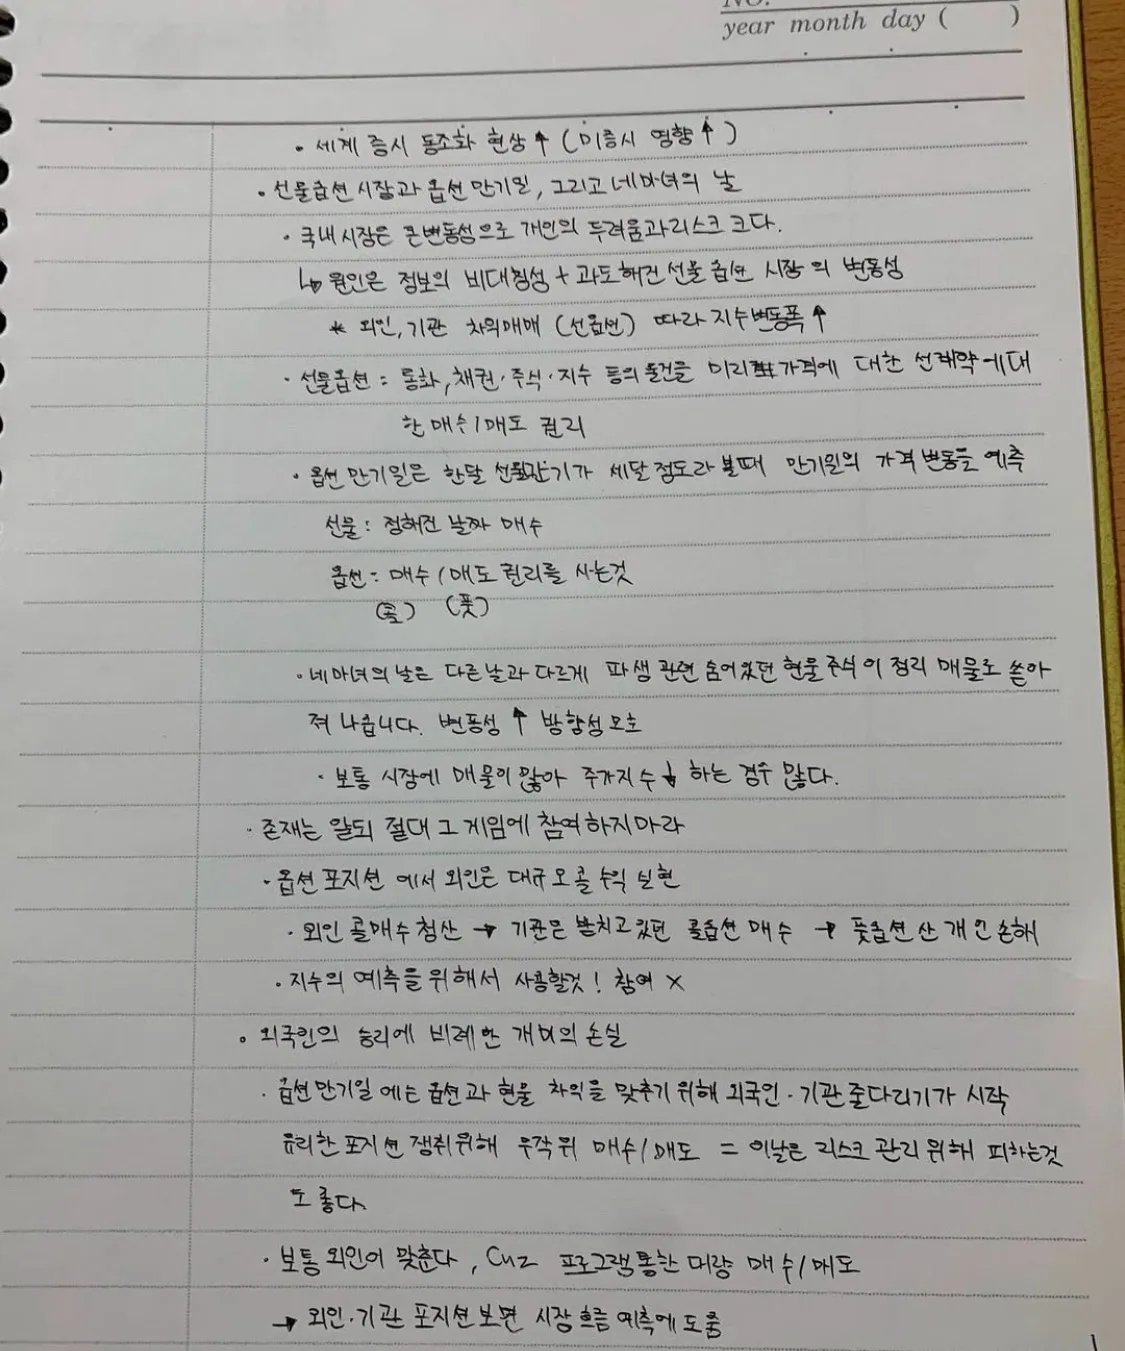 NO.
year month day ( )
· 세계 증시 동조화 현상↑ (미증시 영향↑)
· 선물옵션시장과 옵션만기일, 그리고 네마녀의 날
· 국내시장은 큰변동성으로 개인의 두려움과리스크 크다.
↳ 원인은 정보의 비대칭성 + 과도해진 선물옵션 시장의 변동성
* 외인,기관 차익매매 (선옵션) 따라 지수변동폭↑
· 선물옵션 : 통화, 채권·주식·지수 등의 물건을 미리 가격에 대한 선계약에대
한 매수/매도 권리
· 옵션만기일은 한달 선물만기가 세달정도라 볼때 만기일의 가격변동을 예측
선물 : 정해진 날짜 매수
옵션 : 매수/매도 권리를 사는것
(콜) (풋)
· 네마녀의날은 다른날과 다르게 파생 관련 숨어있던 현물주식이 정리 매물로 쏟아
져 나옵니다. 변동성↑ 방향성모호
· 보통 시장에 매물이많아 주가지수↓ 하는 경우 많다.
· 존재는 알되 절대 그 게임에 참여하지마라
· 옵션 포지션 에서 외인은 대규모콜 수익 실현
· 외인 콜매수청산 → 기관은 받치고있던 콜옵션 매수 → 풋옵션 산 개인 손해
· 지수의 예측을위해서 사용할것! 참여 X
· 외국인의 승리에 비례한 개미의 손실
· 옵션만기일에는 옵션과 현물 차익을 맞추기위해 외국인·기관 줄다리기가 시작
유리한 포지션 쟁취위해 무작위 매수/매도 = 이날은 리스크 관리위해 피하는것
도 좋다.
· 보통 외인이 맞춘다, Cuz 프로그램통한 대량 매수/매도
→ 외인·기관 포지션보면 시장흐름 예측에 도움